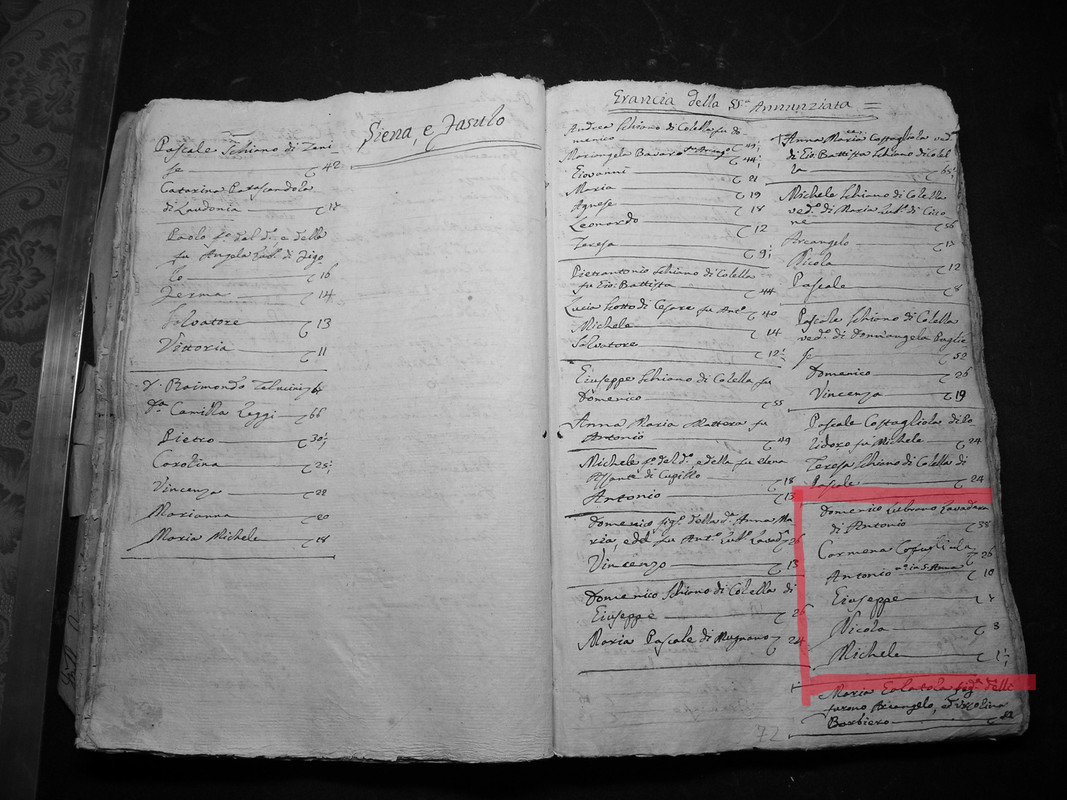 Siena, e Fasulo
Pascale Schiano di Zeni
se 42
Catarina
di Laudonia
Paolo fo. del do. e della
fu Angela
16
14
Salvatore 13
Vittoria 11
D. Raimondo
Da. Camilla 66
Pietro 30
Carolina 25
Vincenza 22
Marianna 20
Maria Michele 18
Grancia della SSma Annunziata
Andrea Schiano di Colella fu Do
menico 49
Mariangela 44
Giovanni 21
Maria 19
Agnese 18
Leonardo 12
Teresa 9
Pietrantonio Schiano di Colella
fu Gio: Battista 44
Lucia Scotto di Cesare fu Anto. 40
Michele 14
Salvatore 12
Giuseppe Schiano di Colella fu
Domenico 55
Anna Maria Mattera fu
Antonio 49
Michele fo. del do., e della fu Elena
Assante di Cupillo 18
Antonio 13
Domenico figo. della da. Anna Ma
ria, e del fu Anto. Lubo. Lavada. 26
Vincenzo 13
Domenico Schiano di Colella di
Giuseppe 26
Maria Pascale di Mugnano 24
Anna Maria Costagliola ved
di Gio: Battista Schiano di Colel
la 65
Michele Schiano di Colella
vedo. di Maria Lubo. di Cico
ne 56
Arcangelo
Nicola 12
Pascale 8
Pascale Schiano di Colella
vedo. di Domiangela Puglie
se 52
Domenico 26
Vincenza 19
Pascale Costagliola di Po
lidoro fu Michele 24
Teresa Schiano di Colella di
Pascale 24
Domenico Lubrano Lavadera
di Antonio 38
Carmena 26
Antonio 10
Giuseppe
Nicola 3
Michele 1
Maria figa. delli
furono Arcangelo, ed Orsolina
Barbiero 82
72